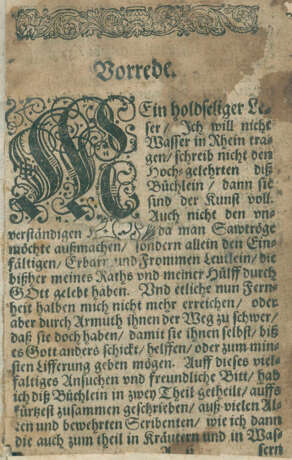 Vorrede.
MEin holdseliger Le-
ser / Ich will nicht
Wasser in Rhein tra-
gen / schreib nicht den
Hoch-gelehrten diß
Büchlein / dann sie
sind der Kunst voll.
Auch nicht den vn-
verständigen da man Sawtröge
möchte außmachen / sondern allein den Ein-
fältigen / Erbarn vnd Frommen Leutlein / die
bißher meines Raths vnd meiner Hülff durch
GOtt gelebt haben. Vnd etliche nun Fern-
heit halben mich nicht mehr erreichen / oder
aber durch Armuth ihnen der Weg zu schwer /
daß sie doch haben / damit sie ihnen selbst / biß
es Gott anders schickt / helffen / oder zum min-
sten Lifferung geben mögen. Auff dieses viel-
faltiges Ansuchen vnd freundliche Bitt / hab
ich diß Büchlein in zwey Theil getheilt / auffs
kürtzest zusammen geschrieben / auß vielen Al-
ten und bewehrten Scribenten / wie ich dann
die auch zum theil in Kräutern und in Was-
sern